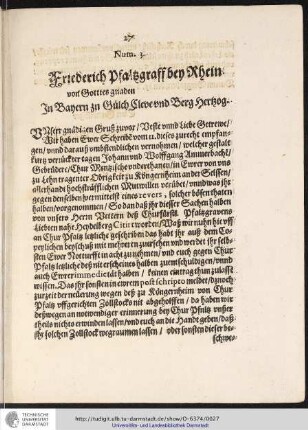 27
Num. 3.
Friederich Pfaltzgraff bey Rhein
von Gottes gnaden
In Bayern zu Gülch Cleve vnd Berg Hertzog.
VNsern gnädigen Gruß zuvor / Veste vnnd Liebe Getrewe /
Wir haben Ewer Schreiben vom 12. dieses zurecht empfangen /
vnnd darauß vmbstendlichen vernohmen / welcher gestalt
kurtz verrückter tagen Johann vnd Wolffgang Ammerbach /
Gebrüdere / Chur Mäintzische vnderthanen / in Ewrer von vns
zu Lehn tragender Obrigkeit zu Köngernheim ander Seltzen /
allerhandt hochsträfflichen Mutwillen verübet / vnnd was ihr
gegen denselben vermittelst eines revers, solcher bösen thaten
halben / vorgenommen / So dan daß ihr dieser Sachen halben
von vnsers Herrn Vettern deß Churfürstl. Pfaltzgravens
Liebten nahe Heydelberg Citirt worden / Waß wir nuhn hievff
an Chur Pfaltz letzliche geschrieben das habt ihr auß dem
beyschluß mit mehrern zuersehen vnd werdet ihr selbsten
Ewer Notturfft in acht zunehmen / vnd euch gegen Chur
Pfaltz letzliche deß nit erscheinens halben zuentschuldigen / vnnd
auch Ewrer immedietät halben / keinen eintrag thun zulassen
wissen. Das ihr sonsten in ewrem postscripto meldet / das noch
zur zeit der newerung wegen deß zu Köngernheim von Chur
Pfaltz vffgerichten Zollstocks nit abgeholffen / da haben wir
deßwegen an notwendiger erinnerung bey Chur Pfaltz vnsers
theils nichts erwinden lassen / vnd euch an die Handt geben / daß
ihr solchen Zollstock wegraumen lassen / oder sonsten dieser be-
schwer-
TECHNISCHE
UNIVERSITÄT
DARMSTADT
http://tudigit.ulb.tu-darmstadt.de/show/O-6374/0027
Universitäts- und Landesbibliothek Darmstadt